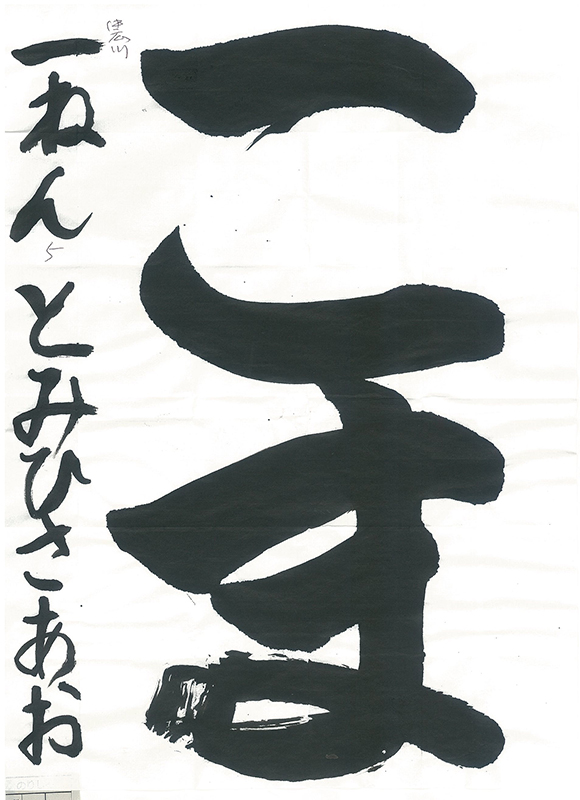 こま
一ねん とみひさあお
5